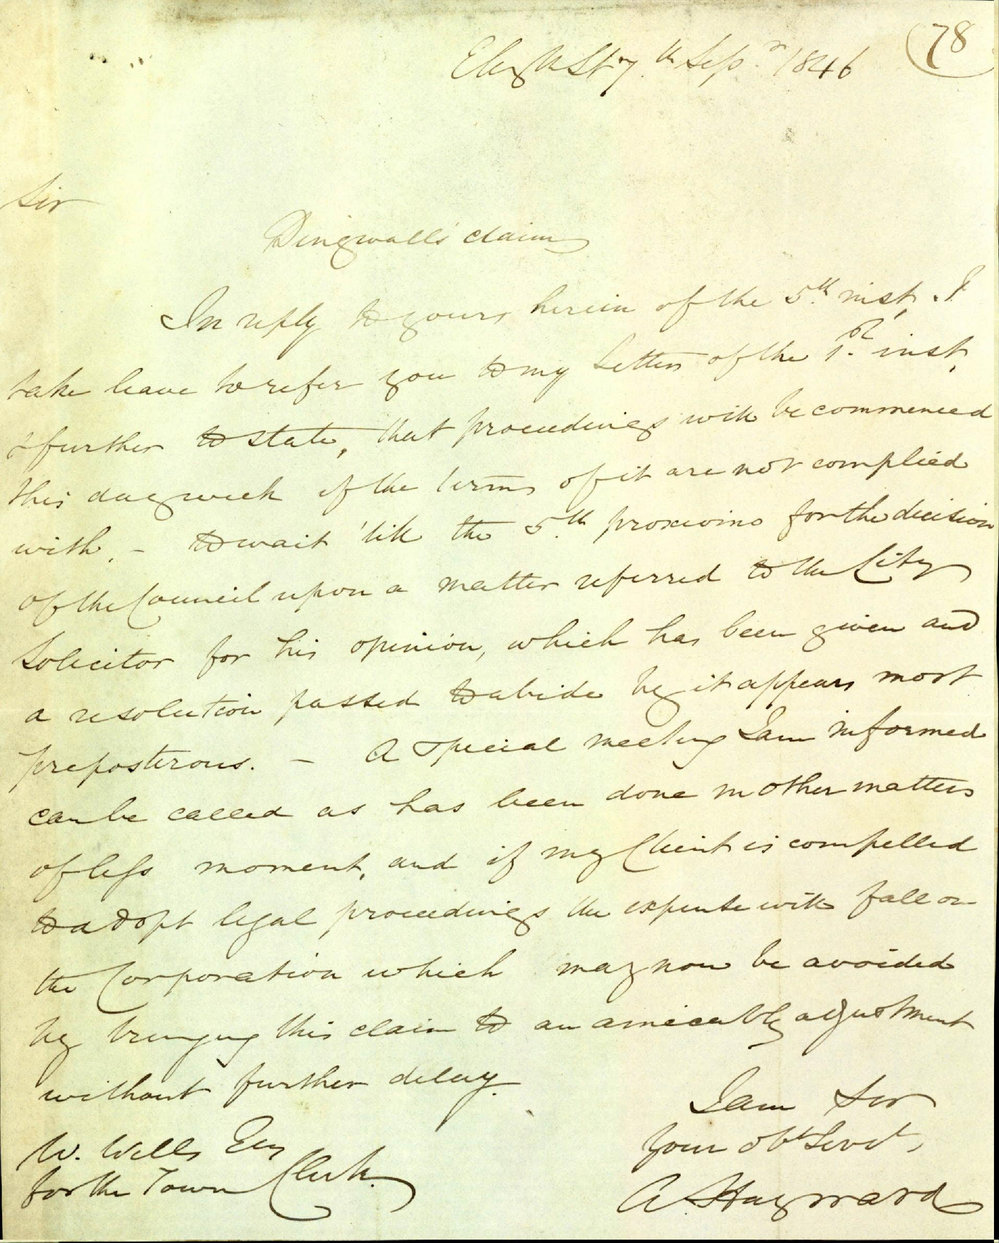 78
Elizth St 7th Sepr 1846
Sir
Dingwall's claim
In reply to yours herein of the 5th inst, I
take leave to refer you to my Letter of the 1st inst,
& further to state, that proceedings will be commenced
this day week if the terms of it are not complied
with, - to wait 'till the 5th proximo for the decision
of the Council upon a matter referred to the City
Solicitor for his opinion, which has been given and
a resolution passed to abide by it appears most
preposterous. - A special meeting I am informed
can be called as has been done in other matters
of less moment, and if my Client is compelled
to adopt legal proceedings the expense will fall on
the Corporation which may now be avoided
by bringing this claim to an amicably adjustment
without further delay.
I am Sir
Your obt Servt,
A. Hayward
W. Wells Esq
for the Town Clerk.